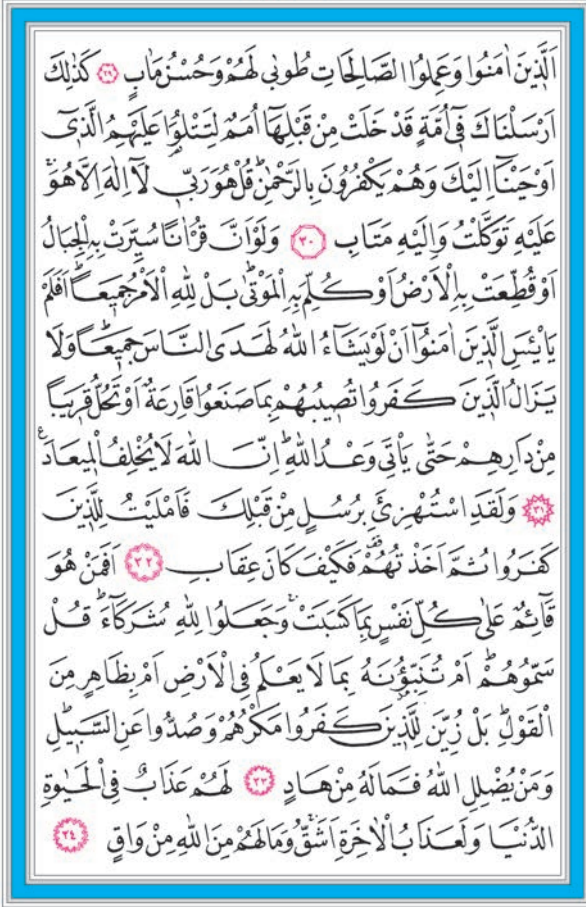 اَلَّذ۪ينَ اٰمَنُوا وَعَمِلُوا الصَّالِحَاتِ طُوبٰى لَهُمْ وَحُسْنُ مَاٰبٍ ﴿٢٩﴾ كَذٰلِكَ
اَرْسَلْنَاكَ ف۪ٓي اُمَّةٍ قَدْ خَلَتْ مِنْ قَبْلِهَٓا اُمَمٌ لِتَتْلُوَ۬ا عَلَيْهِمُ الَّذ۪ٓي
اَوْحَيْنَٓا اِلَيْكَ وَهُمْ يَكْفُرُونَ بِالرَّحْمٰنِۜ قُلْ هُوَ رَبّ۪ي لَٓا اِلٰهَ اِلَّا هُوَۚ
عَلَيْهِ تَوَكَّلْتُ وَاِلَيْهِ مَتَابِ ﴿٣٠﴾ وَلَوْ اَنَّ قُرْاٰنًا سُيِّرَتْ بِهِ الْجِبَالُ
اَوْ قُطِّعَتْ بِهِ الْاَرْضُ اَوْ كُلِّمَ بِهِ الْمَوْتٰىۜ بَلْ لِلّٰهِ الْاَمْرُ جَم۪يعًاۜ اَفَلَمْ
يَايْـَٔسِ الَّذ۪ينَ اٰمَنُٓوا اَنْ لَوْ يَشَٓاءُ اللّٰهُ لَهَدَى النَّاسَ جَم۪يعًاۜ وَلَا
يَزَالُ الَّذ۪ينَ كَفَرُوا تُص۪يبُهُمْ بِمَا صَنَعُوا قَارِعَةٌ اَوْ تَحُلُّ قَر۪يبًا
مِنْ دَارِهِمْ حَتّٰى يَأْتِيَ وَعْدُ اللّٰهِۜ اِنَّ اللّٰهَ لَا يُخْلِفُ الْم۪يعَادَ۟
﴿٣١﴾ وَلَقَدِ اسْتُهْزِئَ بِرُسُلٍ مِنْ قَبْلِكَ فَاَمْلَيْتُ لِلَّذ۪ينَ
كَفَرُوا ثُمَّ اَخَذْتُهُمْ فَكَيْفَ كَانَ عِقَابِ ﴿٣٢﴾ اَفَمَنْ هُوَ
قَٓائِمٌ عَلٰى كُلِّ نَفْسٍ بِمَا كَسَبَتْۚ وَجَعَلُوا لِلّٰهِ شُرَكَٓاءَۜ قُلْ
سَمُّوهُمْۜ اَمْ تُنَبِّؤُ۫نَهُ بِمَا لَا يَعْلَمُ فِي الْاَرْضِ اَمْ بِظَاهِرٍ مِنَ
الْقَوْلِۜ بَلْ زُيِّنَ لِلَّذ۪ينَ كَفَرُوا مَكْرُهُمْ وَصُدُّوا عَنِ السَّب۪يلِۜ
وَمَنْ يُضْلِلِ اللّٰهُ فَمَا لَهُ مِنْ هَادٍ ﴿٣٣﴾ لَهُمْ عَذَابٌ فِي الْحَيٰوةِ
الدُّنْيَا وَلَعَذَابُ الْاٰخِرَةِ اَشَقُّۚ وَمَا لَهُمْ مِنَ اللّٰهِ مِنْ وَاقٍ ﴿٣٤﴾